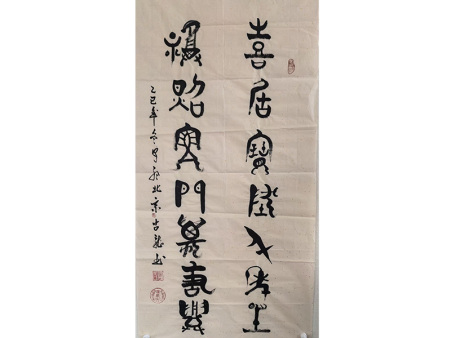 喜居寶地千年旺
福照家門萬事興
乙巳年冬月於北京古龍書